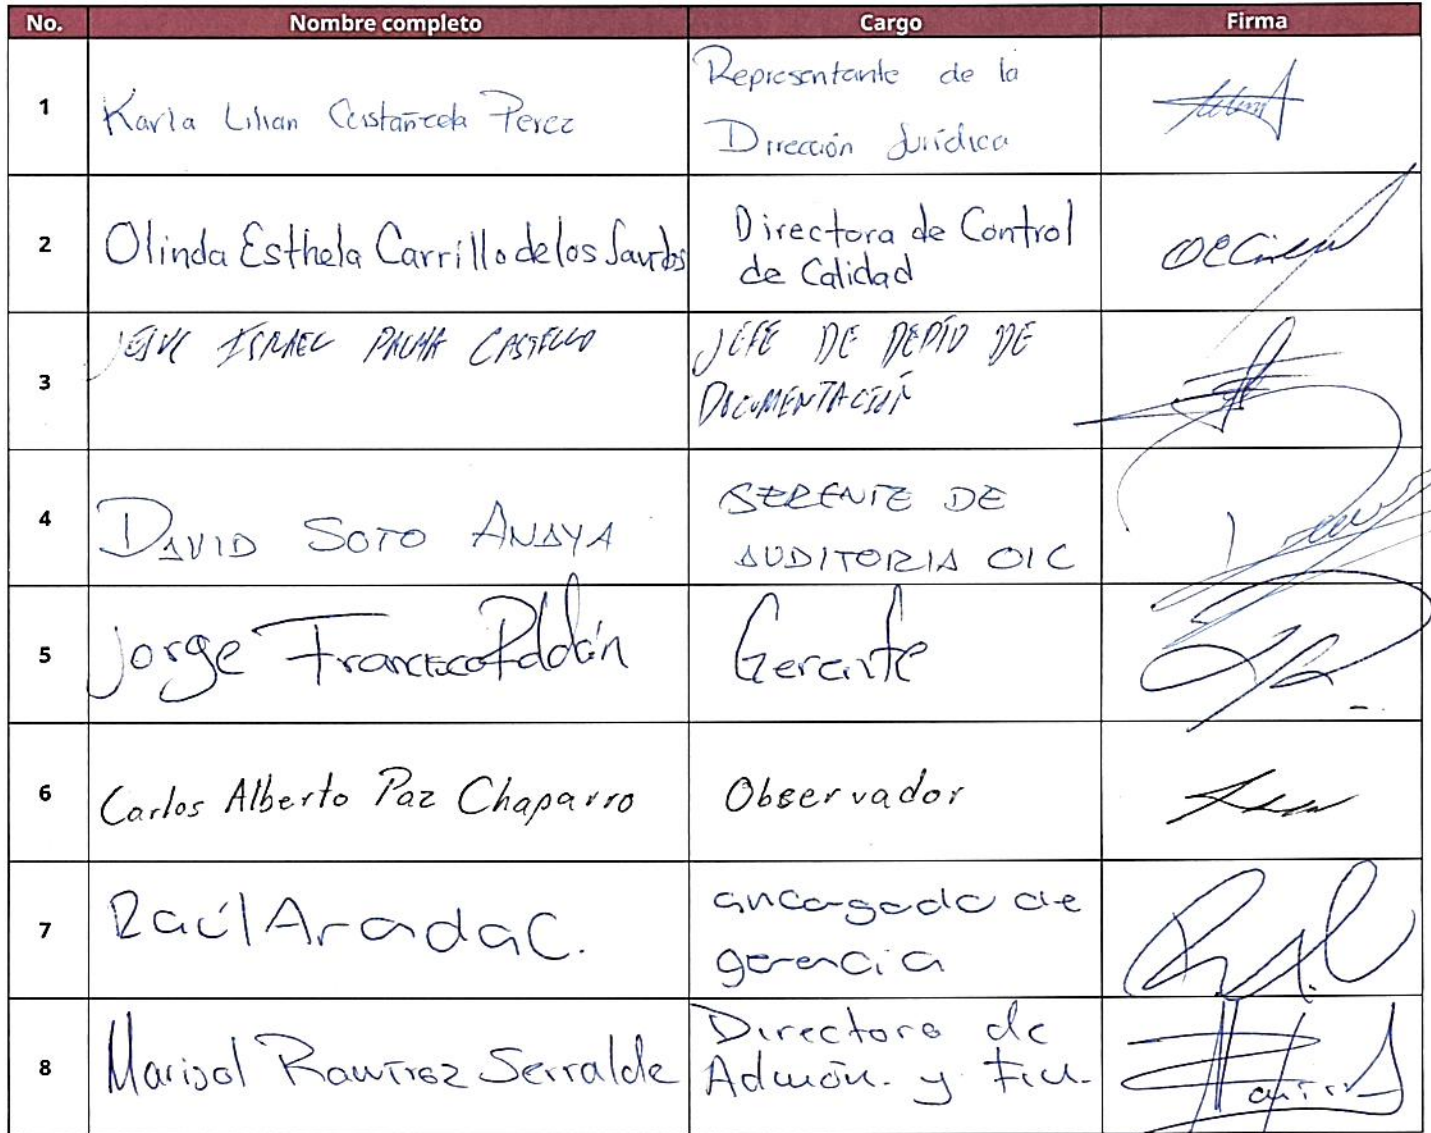 No. Nombre completo Cargo Firma
1 Karla Lilian Castañeda Perez Representante de la
Dirección Jurídica
2 Olinda Esthela Carrillo de los Santos Directora de Control
de Calidad
3 ISRAEL PALMA CASTELLO JEFE DE DEPTO DE
DOCUMENTACIÓN
4 DAVID SOTO ANAYA GERENTE DE
AUDITORIA OIC
5 Jorge Francisco Roldán Gerente
6 Carlos Alberto Paz Chaparro Observador
7 Raúl Aranda C. encargado de
gerencia
8 Marisol Ramírez Serralde Directora de
Admón. y Fin.